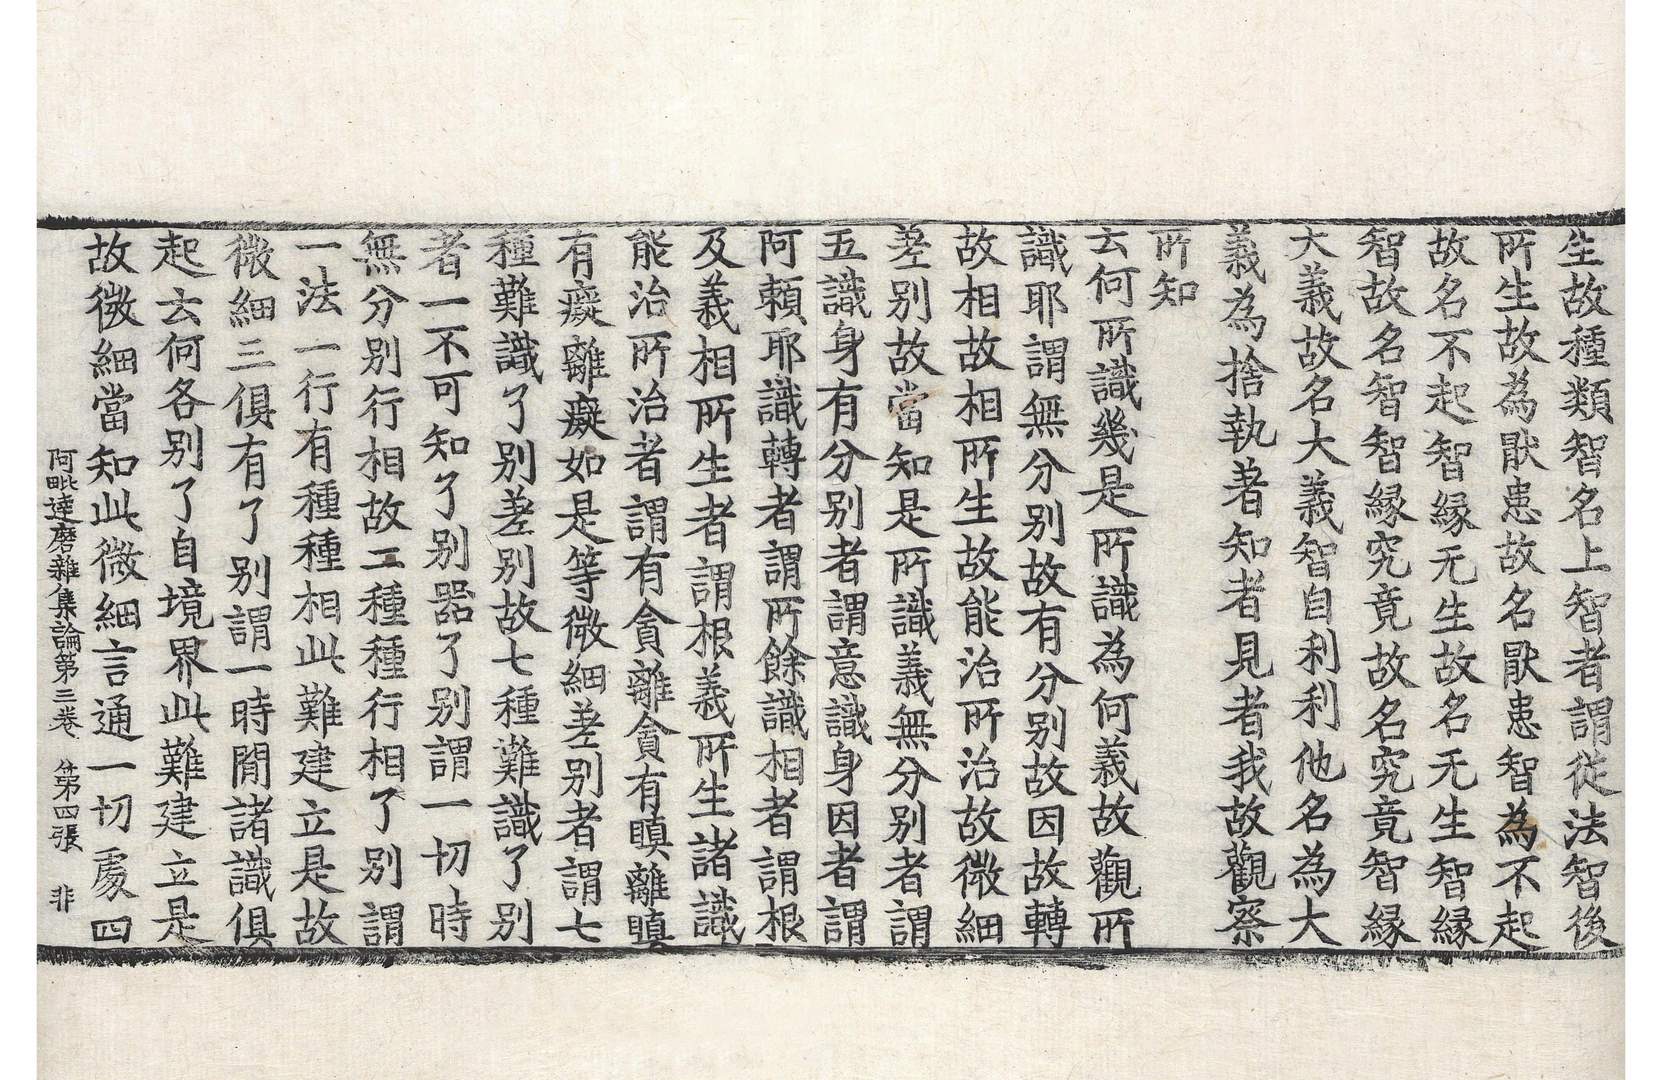 生故種類智名上智者謂從法智後
所生故為猒患故名猒患智為不起
故名不起智縁无生故名无生智縁
智故名智智縁究竟故名究竟智縁
大義故名大義智自利利他名為大
義為捨執著者知者見者我故觀察
所知
云何所識幾是所識為何義故觀所
識耶謂無分别故有分别故因故轉
故相故相所生故能治所治故微細
差别故當知是所識義無分别者謂
五識身有分别者謂意識身因者謂
阿頼耶識轉者謂所餘識相者謂根
及義相所生者謂根義所生諸識
能治所治者謂有貪離貪有瞋離瞋
有癡離癡如是等微細差别者謂七
種難識了别差别故七種難識了别
者一不可知了别器了别謂一切時
無分别行相故二種種行相了别謂
一法一行有種種相此難建立是故
微細三俱有了别謂一時閒諸識俱
起云何各别了自境界此難建立是
故微細當知此微細言通一切處四
阿毗達磨雜集論第三卷 第四張 非